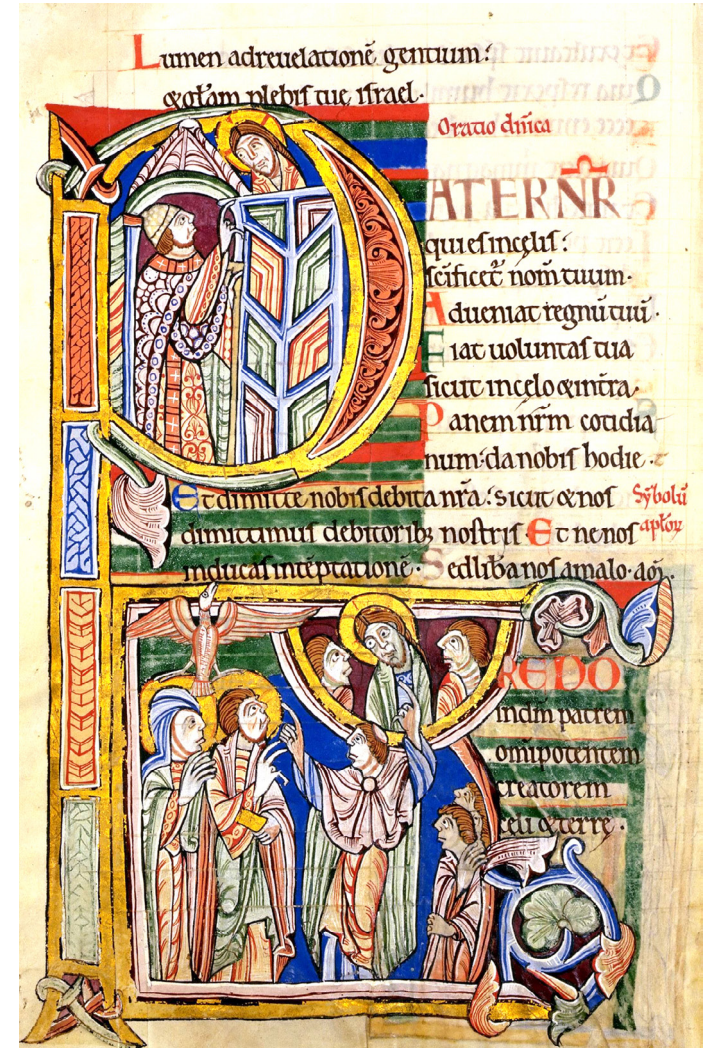 Lumen adreuelationē gentium:
&gl̄am plebis tuę israel.
Oratio dn̄ica
PATERNR̄
qui es incęlis:
sc̄ificet̄ nom̄ tuum.
Adueniat regnū tuū.
Fiat uoluntas tua
sicut incęlo &int̄ra.
Panem nr̄m cotidia
num: da nobis hodie.
Et dimitte nobis debita nr̄a: sicut & nos
Sȳbolū
dimittimus debitoribꝫ nostris Et ne nos
apl̄oꝝ
inducas intēptationē. Sed lib̄a nos amalo. am̄.
CREDO
indm̄ patrem
omīpotentem
creatorem
cęli &terrę.